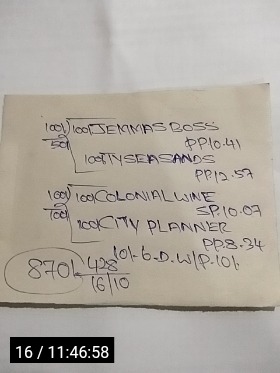 100/ 100/ JEMMAS BOSS
50/ PP10.41
100 TYSEASANDS
PP12.57
100/ 100/ COLONIAL WINE
100/ SP.10.07
100/ CITY PLANNER
PP.8.34
10/- 6-D. W/P. 10/-
870/- 428
16/10
16 / 11:46:58